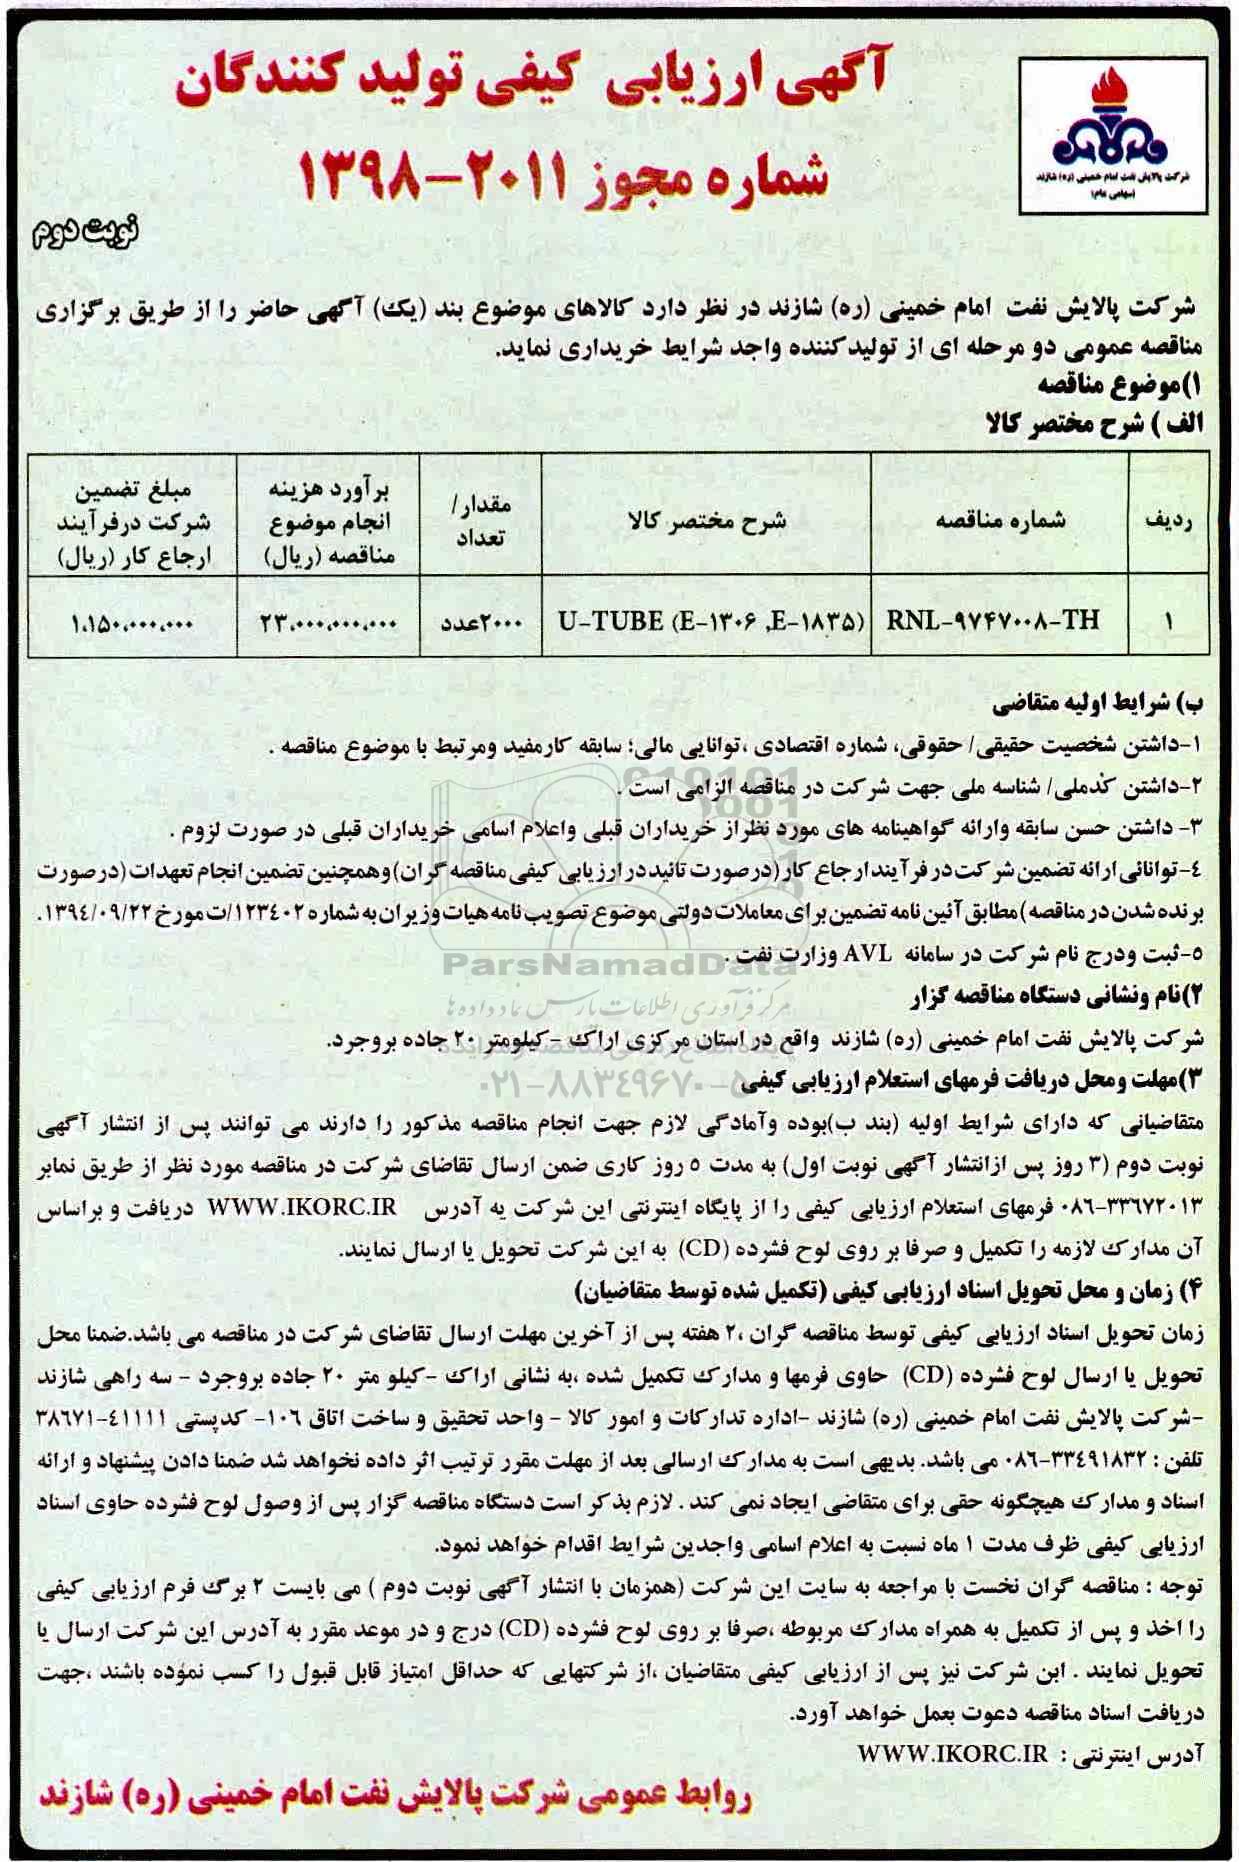 آگهی ارزیابی کیفی تولید کنندگان
شماره مجوز ۲۰۱۱-۱۳۹۸
شرکت پالایش نفت امام خمینی (ره) شازند
(سهامی عام)
نوبت دوم
شرکت پالایش نفت امام خمینی (ره) شازند در نظر دارد کالاهای موضوع بند (یک) آگهی حاضر را از طریق برگزاری
مناقصه عمومی دو مرحله ای از تولیدکننده واجد شرایط خریداری نماید.
۱)موضوع مناقصه
الف ) شرح مختصر کالا
ردیف | شماره مناقصه | شرح مختصر کالا | مقدار/ تعداد | برآورد هزینه انجام موضوع مناقصه (ریال) | مبلغ تضمین شرکت درفرآیند ارجاع کار (ریال)
۱ | RNL-۹۷۴۷۰۰۸-TH | U-TUBE (E-۱۳۰۶ ,E-۱۸۳۵) | ۲۰۰۰عدد | ۲۳،۰۰۰،۰۰۰،۰۰۰ | ۱،۱۵۰،۰۰۰،۰۰۰
ب) شرایط اولیه متقاضی
۱-داشتن شخصیت حقیقی/ حقوقی، شماره اقتصادی ،توانایی مالی؛ سابقه کارمفید ومرتبط با موضوع مناقصه .
۲-داشتن کدملی/ شناسه ملی جهت شرکت در مناقصه الزامی است .
۳- داشتن حسن سابقه وارائه گواهینامه های مورد نظراز خریداران قبلی واعلام اسامی خریداران قبلی در صورت لزوم .
۴-توانائی ارائه تضمین شرکت در فرآیند ارجاع کار (درصورت تائید در ارزیابی کیفی مناقصه گران) و همچنین تضمین انجام تعهدات (درصورت
برنده شدن در مناقصه) مطابق آئین نامه تضمین برای معاملات دولتی موضوع تصویب نامه هیات وزیران به شماره ۱۲۳۴۰۲/ت مورخ ۱۳۹۴/۰۹/۲۲.
۵-ثبت ودرج نام شرکت در سامانه AVL وزارت نفت .
ParsNamadData
مرکز فرآوری اطلاعات پارس نماد داده ها
۰۲۱-۸۸۳۴۹۶۷۰-۵
۲)نام ونشانی دستگاه مناقصه گزار
شرکت پالایش نفت امام خمینی (ره) شازند واقع در استان مرکزی اراک -کیلومتر ۲۰ جاده بروجرد.
۳)مهلت ومحل دریافت فرمهای استعلام ارزیابی کیفی
متقاضیانی که دارای شرایط اولیه (بند ب)بوده وآمادگی لازم جهت انجام مناقصه مذکور را دارند می توانند پس از انتشار آگهی
نوبت دوم (۳ روز پس ازانتشار آگهی نوبت اول) به مدت ۵ روز کاری ضمن ارسال تقاضای شرکت در مناقصه مورد نظر از طریق نمابر
۰۸۶-۳۳۶۷۲۰۱۳ فرمهای استعلام ارزیابی کیفی را از پایگاه اینترنتی این شرکت به آدرس WWW.IKORC.IR دریافت و براساس
آن مدارک لازمه را تکمیل و صرفا بر روی لوح فشرده (CD) به این شرکت تحویل یا ارسال نمایند.
۴) زمان و محل تحویل اسناد ارزیابی کیفی (تکمیل شده توسط متقاضیان)
زمان تحویل اسناد ارزیابی کیفی توسط مناقصه گران ،۲ هفته پس از آخرین مهلت ارسال تقاضای شرکت در مناقصه می باشد.ضمنا محل
تحویل یا ارسال لوح فشرده (CD) حاوی فرمها و مدارک تکمیل شده ،به نشانی اراک -کیلو متر ۲۰ جاده بروجرد - سه راهی شازند
-شرکت پالایش نفت امام خمینی (ره) شازند -اداره تدارکات و امور کالا - واحد تحقیق و ساخت اتاق ۱۰۶- کدپستی ۴۱۱۱۱-۳۸۶۷۱
تلفن : ۰۸۶-۳۳۴۹۱۸۳۲ می باشد. بدیهی است به مدارک ارسالی بعد از مهلت مقرر ترتیب اثر داده نخواهد شد ضمنا دادن پیشنهاد و ارائه
اسناد و مدارک هیچگونه حقی برای متقاضی ایجاد نمی کند . لازم بذکر است دستگاه مناقصه گزار پس از وصول لوح فشرده حاوی اسناد
ارزیابی کیفی ظرف مدت ۱ ماه نسبت به اعلام اسامی واجدین شرایط اقدام خواهد نمود.
توجه : مناقصه گران نخست با مراجعه به سایت این شرکت (همزمان با انتشار آگهی نوبت دوم ) می بایست ۲ برگ فرم ارزیابی کیفی
را اخذ و پس از تکمیل به همراه مدارک مربوطه ،صرفا بر روی لوح فشرده (CD) درج و در موعد مقرر به آدرس این شرکت ارسال یا
تحویل نمایند . این شرکت نیز پس از ارزیابی کیفی متقاضیان ،از شرکتهایی که حداقل امتیاز قابل قبول را کسب نموده باشند ،جهت
دریافت اسناد مناقصه دعوت بعمل خواهد آورد.
آدرس اینترنتی : WWW.IKORC.IR
روابط عمومی شرکت پالایش نفت امام خمینی (ره) شازند